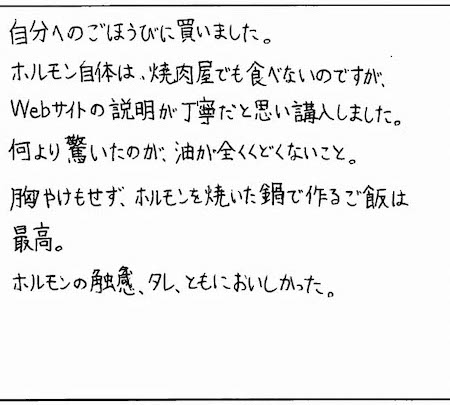 自分へのごほうびに買いました。
ホルモン自体は、焼肉屋でも食べないのですが、
Webサイトの説明が丁寧だと思い講入しました。
何より驚いたのが、油が全くくどくないこと。
胸やけもせず、ホルモンを焼いた鍋で作るご飯は
最高。
ホルモンの触感、タレ、ともにおいしかった。